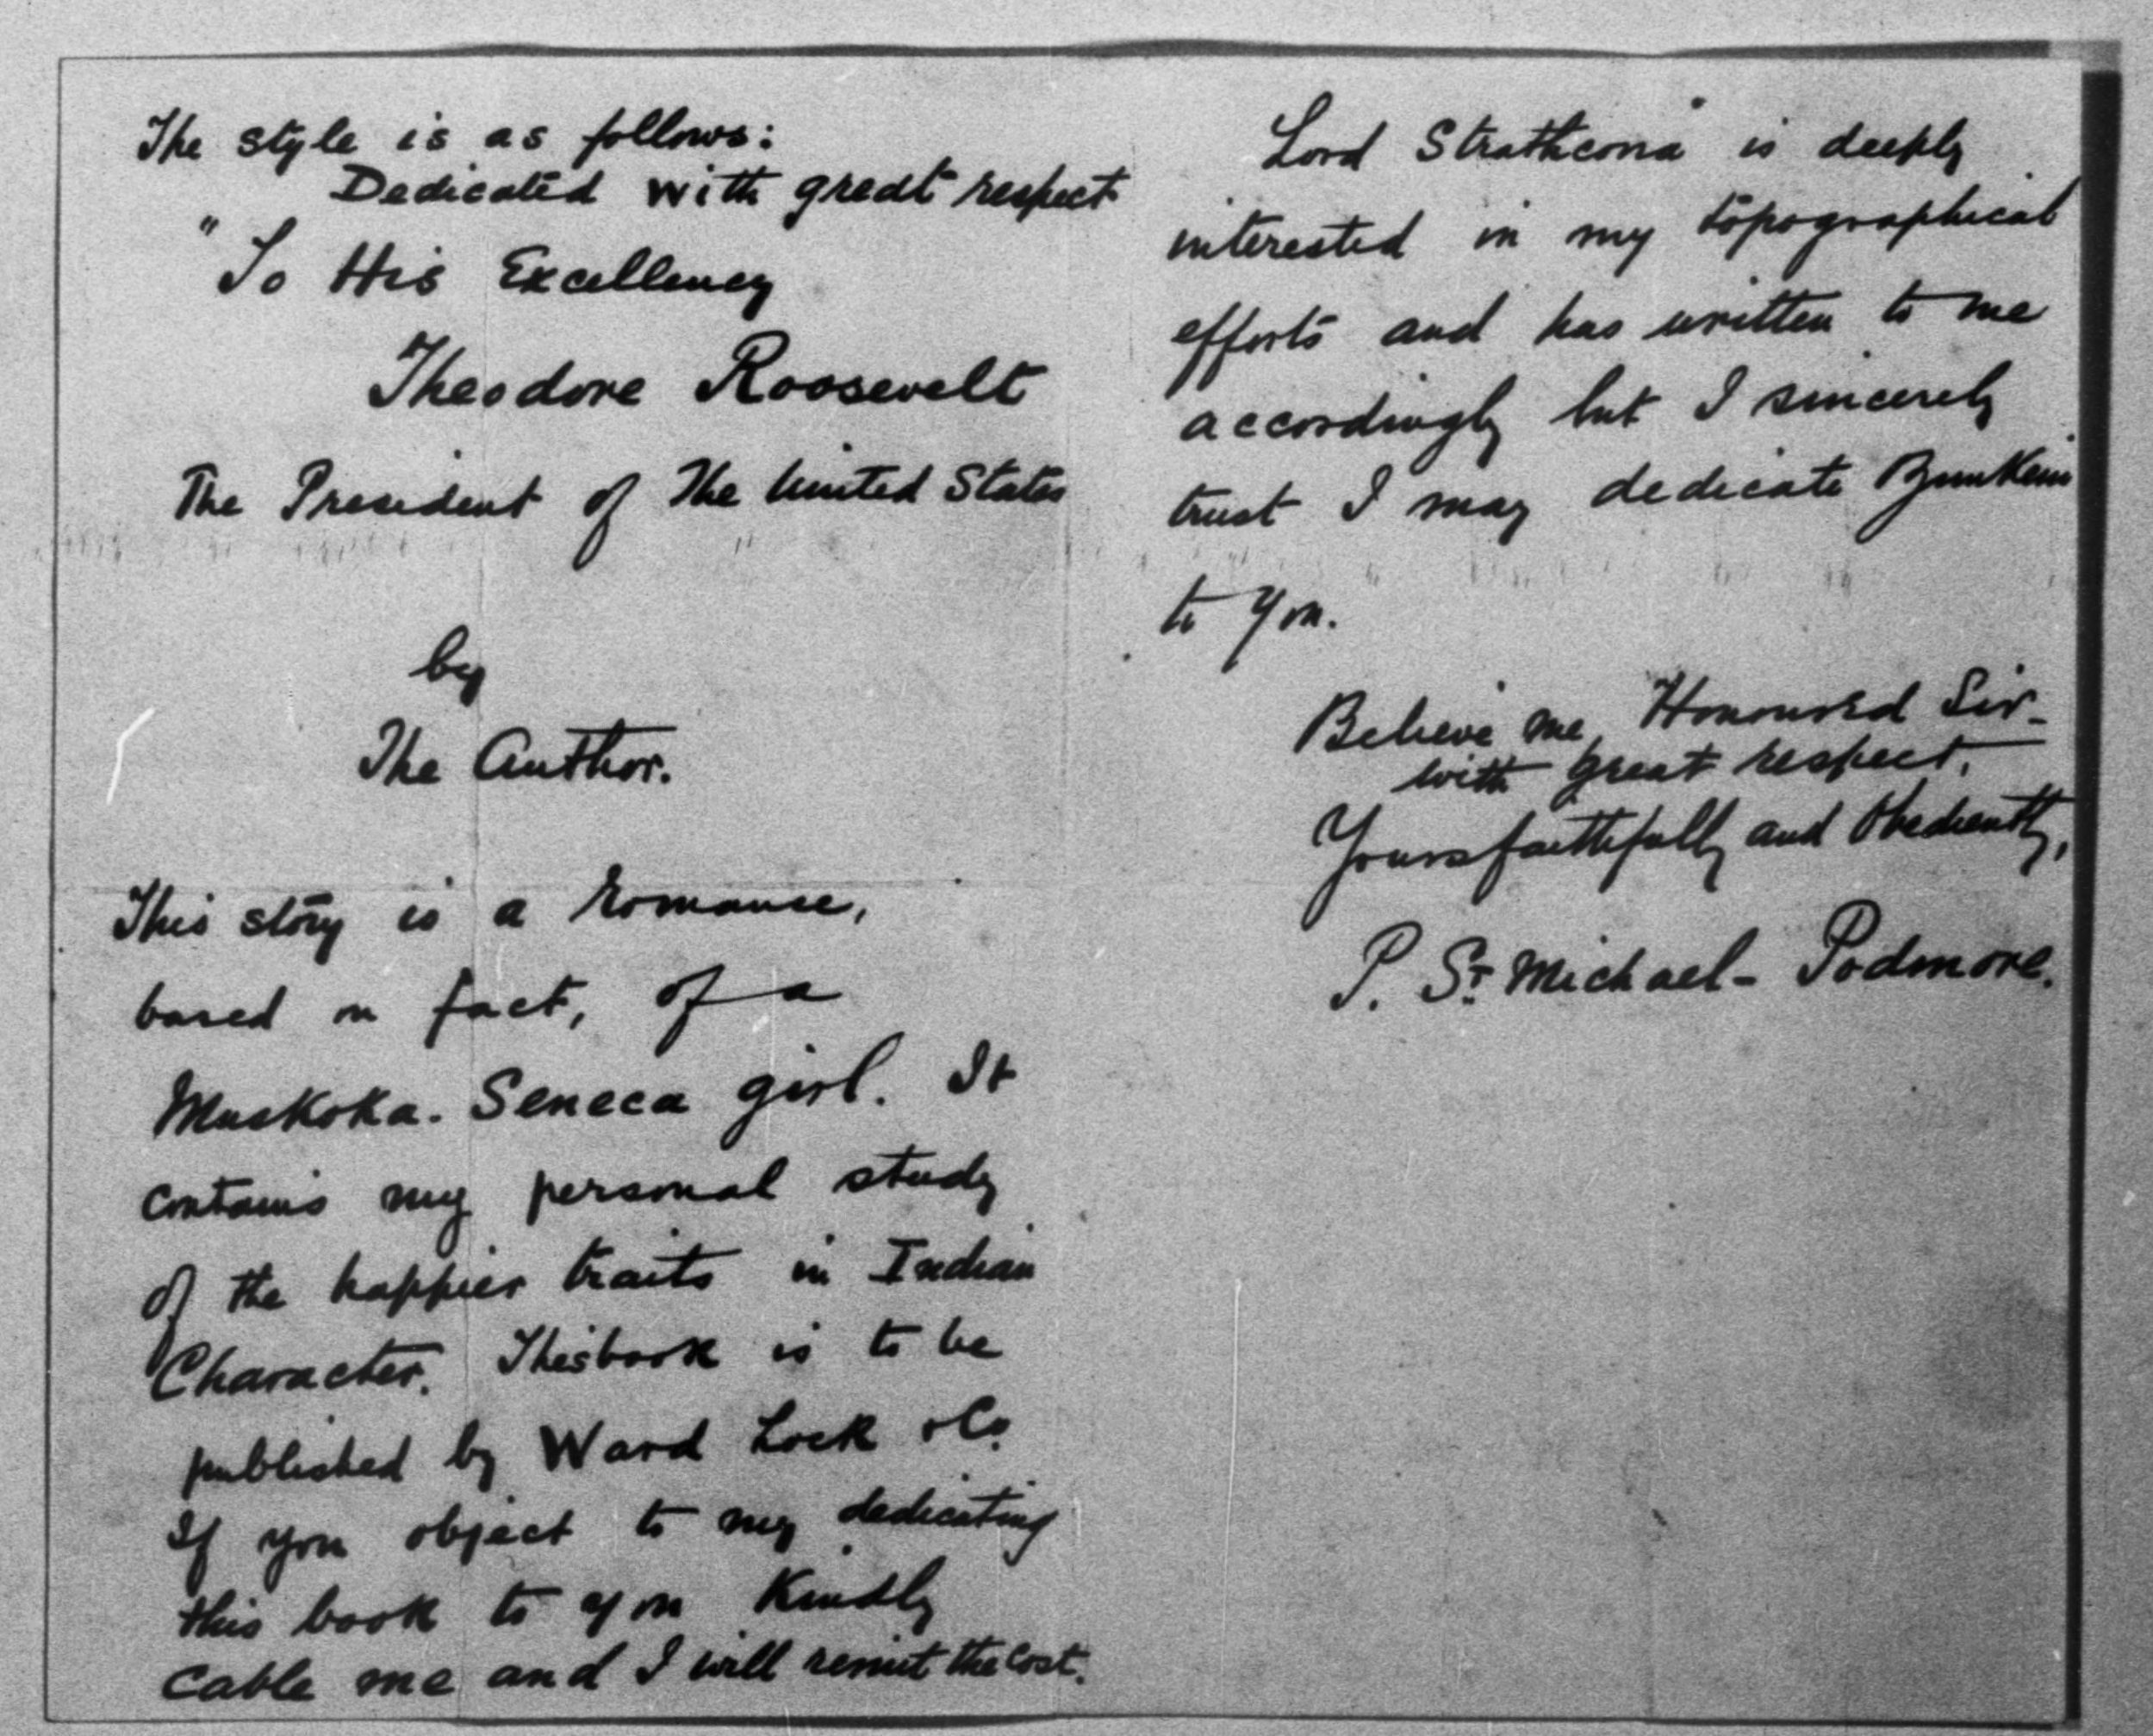 The style is as follows:
Dedicated with great respect
"To His Excellency
Theodore Roosevelt
The President of The United States
by
The Author.
This story is a romance,
based on fact, of a
Muskoka-Seneca girl. It
contains my personal study
of the happier traits in Indian
Character. This book is to be
published by Ward Lock & Co.
If you object to my dedicating
this book to you Kindly
cable me and I will remit the cost.
Lord Strathcona is deeply
interested in my topographical
efforts and has written to me
accordingly but I sincerely
trust I may dedicate
to you.
Believe me, Honoured Sir-
with great respect,
Yours faithfully and Obediently,
P. St. Michael-Podmore.